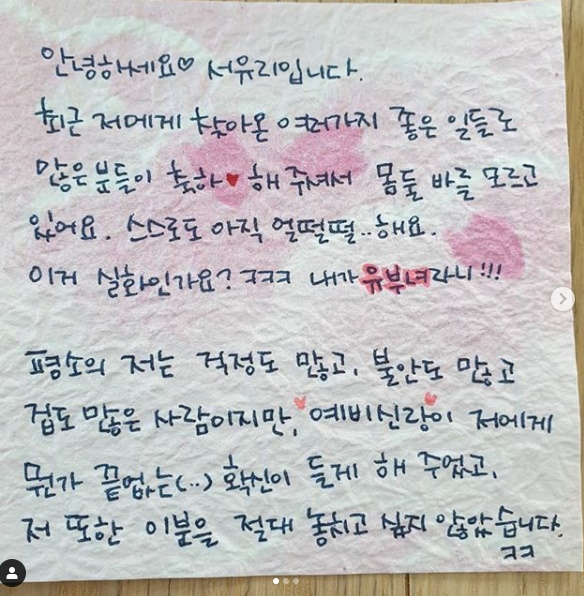 안녕하세요♡ 서유리입니다.
최근 저에게 찾아온 여러가지 좋은 일들로
많은분들이 축하♥ 해 주셔서 몸둘 바를 모르고
있어요. 스스로도 아직 얼떨떨..해요.
이거 실화인가요? ㅋㅋㅋ 내가 유부녀라니!!!
평소의 저는 걱정도 많고, 불안도 많고
겁도 많은 사람이지만, 예비신랑이 저에게
뭔가 끝없는(..) 확신이 들게 해 주었고,
저 또한 이분을 절대 놓치고 싶지 않았습니다.
ㅋㅋ